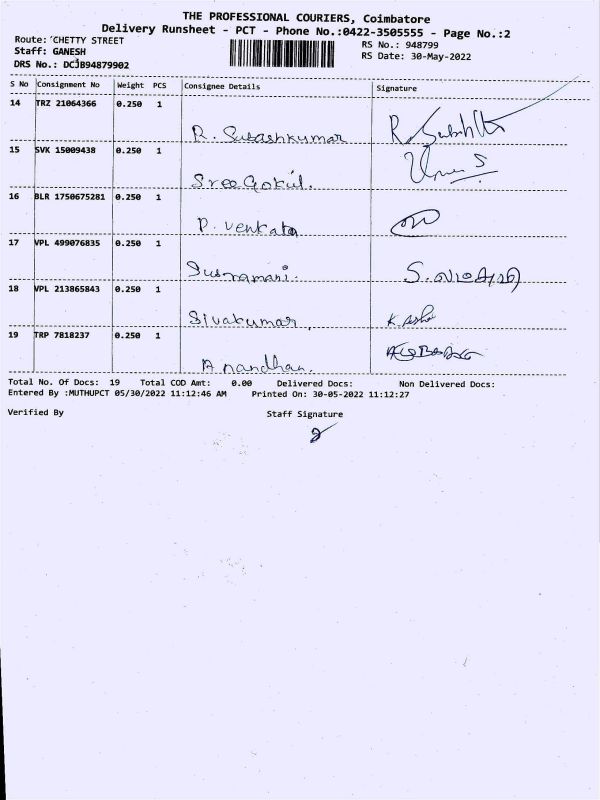 THE PROFESSIONAL COURIERS, Coimbatore
Delivery Runsheet - PCT - Phone No.:0422-3505555 - Page No.:2
Route: CHETTY STREET
RS No.: 948799
Staff: GANESH
RS Date: 30-May-2022
DRS No.: DCJB94879902
S No Consignment No Weight PCS Consignee Details Signature
14 TRZ 21064366 0.250 1
R. Subashkumar
15 SVK 15009438 0.250 1
Sree Gokul.
16 BLR 1750675281 0.250 1
P. Venkata
17 VPL 499076835 0.250 1
18 VPL 213865843 0.250 1
Sivakumar
K. Asha
19 TRP 7818237 0.250 1
Anandhan.
Total No. Of Docs: 19 Total COD Amt: 0.00 Delivered Docs: Non Delivered Docs:
Entered By :MUTHUPCT 05/30/2022 11:12:46 AM Printed On: 30-05-2022 11:12:27
Verified By Staff Signature